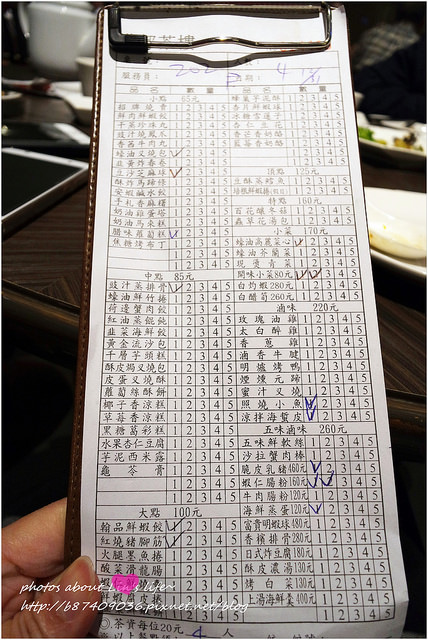 服務員:
品名 數量 品名 數量
小點 65元
招牌燒賣 1 2 3 4 5
鮮肉鮮蝦餃 1 2 3 4 5
干蒸珍珠丸 1 2 3 4 5
豉汁燒鳳爪 1 2 3 4 5
香茜牛肉丸 1 2 3 4 5
蠔油叉燒包 1 2 3 4 5
韮黃炸春卷 1 2 3 4 5
豆沙芝麻球 1 2 3 4 5
酥炸馬蹄條 1 2 3 4 5
安蝦鹹水餃 1 2 3 4 5
手札香麻糬 1 2 3 4 5
奶油雞蛋塔 1 2 3 4 5
奶油馬來糕 1 2 3 4 5
臘味蘿蔔糕 1 2 3 4 5
焦糖烤布丁 1 2 3 4 5
中點 85元
豉汁蒸排骨 1 2 3 4 5
蠔油鮮竹捲 1 2 3 4 5
荷邊蟹肉餃 1 2 3 4 5
紅油蒸餛飩 1 2 3 4 5
韮菜海鮮餃 1 2 3 4 5
黃金流沙包 1 2 3 4 5
千層芋頭糕 1 2 3 4 5
酥皮焗叉燒包 1 2 3 4 5
皮蛋叉燒酥 1 2 3 4 5
蘿蔔絲酥餅 1 2 3 4 5
椰子香涼糕 1 2 3 4 5
草莓香涼糕 1 2 3 4 5
黑糖葛彩糕 1 2 3 4 5
水果杏仁豆腐 1 2 3 4 5
芋泥西米露 1 2 3 4 5
龜苓膏 1 2 3 4 5
大點 100元
翰品鮮蝦餃 1 2 3 4 5
紅燒豬腳筋 1 2 3 4 5
火腿墨魚捲 1 2 3 4 5
酸菜滑龍腸 1 2 3 4 5
芒果奶酪 1 2 3 4 5
頂點 125元
特點 160元
百花釀冬菇 1 2 3 4 5
蟲草花湯包 1 2 3 4 5
小菜 170元
蠔油高麗菜心 1 2 3 4 5
蠔油芥蘭菜 1 2 3 4 5
現燙青菜 1 2 3 4 5
開味小菜80元 1 2 3 4 5
白灼蝦280元 1 2 3 4 5
白醋筍260元 1 2 3 4 5
滷味 220元
玫瑰油雞 1 2 3 4 5
太白醉雞 1 2 3 4 5
香蔥雞 1 2 3 4 5
滷香牛腱 1 2 3 4 5
明爐烤鴨 1 2 3 4 5
煙燻元蹄 1 2 3 4 5
蜜汁叉燒 1 2 3 4 5
照燒小魚 1 2 3 4 5
涼拌海蜇皮 1 2 3 4 5
五味滷味 260元
五味鮮軟絲 1 2 3 4 5
沙拉蟹肉棒 1 2 3 4 5
脆皮乳豬460元 1 2 3 4 5
蝦仁腸粉160元 1 2 3 4 5
牛肉腸粉120元 1 2 3 4 5
海鮮蒸蛋120元 1 2 3 4 5
富貴明蝦球480元 1 2 3 4 5
香檳排骨280元 1 2 3 4 5
日式炸豆腐180元 1 2 3 4 5
酥皮濃湯130元 1 2 3 4 5
烤白菜130元 1 2 3 4 5
上湯海鮮羹400元 1 2 3 4 5
◎茶資每位20元 4 人
photos about Lin's life
http://b87409036.pixnet.net/blog